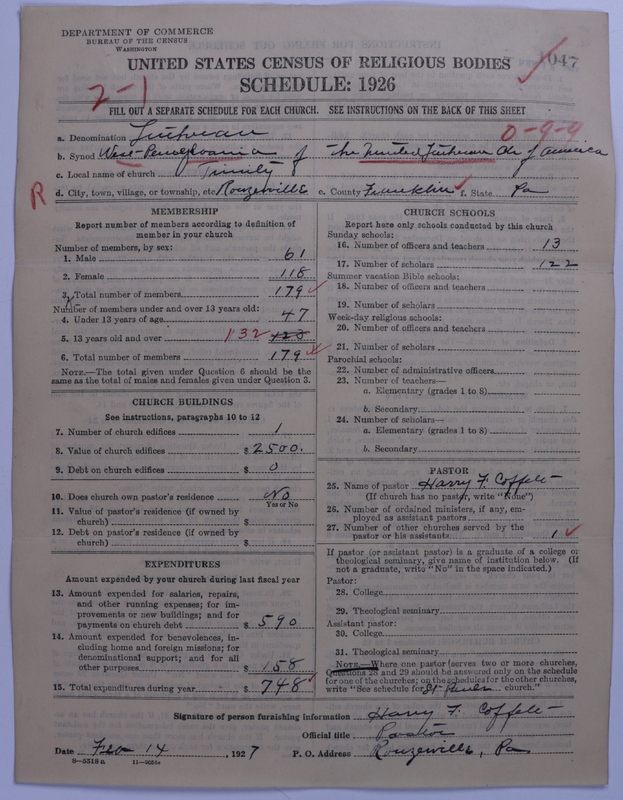 DEPARTMENT OF COMMERCE
BUREAU OF THE CENSUS
WASHINGTON
UNITED STATES CENSUS OF RELIGIOUS BODIES
1047
SCHEDULE: 1926
2-1
FILL OUT A SEPARATE SCHEDULE FOR EACH CHURCH. SEE INSTRUCTIONS ON THE BACK OF THIS SHEET
0-9-9
a. Denomination Lutheran
b. Synod West Pennsylvania of the United Lutheran Ch of America
c. Local name of church Trinity
R
d. City, town, village, or township, etc. Rouzerville e. County Franklin f. State Pa
MEMBERSHIP
Report number of members according to definition of
member in your church
Number of members, by sex:
1. Male 61
2. Female 118
3. Total number of members 179
Number of members under and over 13 years old:
4. Under 13 years of age 47
5. 13 years old and over 132
6. Total number of members 179
NOTE.—The total given under Question 6 should be the
same as the total of males and females given under Question 3.
CHURCH BUILDINGS
See instructions, paragraphs 10 to 12
7. Number of church edifices 1
8. Value of church edifices $ 2500.
9. Debt on church edifices $ 0
10. Does church own pastor's residence No
Yes or No
11. Value of pastor's residence (if owned by
church) $
12. Debt on pastor's residence (if owned by
church) $
EXPENDITURES
Amount expended by your church during last fiscal year
13. Amount expended for salaries, repairs,
and other running expenses; for im-
provements or new buildings; and for
payments on church debt $ 590
14. Amount expended for benevolences, in-
cluding home and foreign missions; for
denominational support; and for all
other purposes $ 158
15. Total expenditures during year $ 748
CHURCH SCHOOLS
Report here only schools conducted by this church
Sunday schools:
16. Number of officers and teachers 13
17. Number of scholars 122
Summer vacation Bible schools:
18. Number of officers and teachers
19. Number of scholars
Week-day religious schools:
20. Number of officers and teachers
21. Number of scholars
Parochial schools:
22. Number of administrative officers
23. Number of teachers—
a. Elementary (grades 1 to 8)
b. Secondary
24. Number of scholars—
a. Elementary (grades 1 to 8)
b. Secondary
PASTOR
25. Name of pastor Harry F. Coffelt
(If church has no pastor, write "None")
26. Number of ordained ministers, if any, em-
ployed as assistant pastors
27. Number of other churches served by the
pastor or his assistants 1
If pastor (or assistant pastor) is a graduate of a college or
theological seminary, give name of institution below. (If
not a graduate, write "No" in the space indicated.)
Pastor:
28. College
29. Theological seminary
Assistant pastor:
30. College
31. Theological seminary
NOTE.—Where one pastor serves two or more churches,
Questions 28 and 29 should be answered only on the schedule
for one of the churches; on the schedules for the other churches,
write "See schedule for St. church."
Signature of person furnishing information Harry F. Coffelt
Official title Pastor
Date Feb 14, 1927 P. O. Address Rouzerville, Pa
8—5518 a 11—9054a